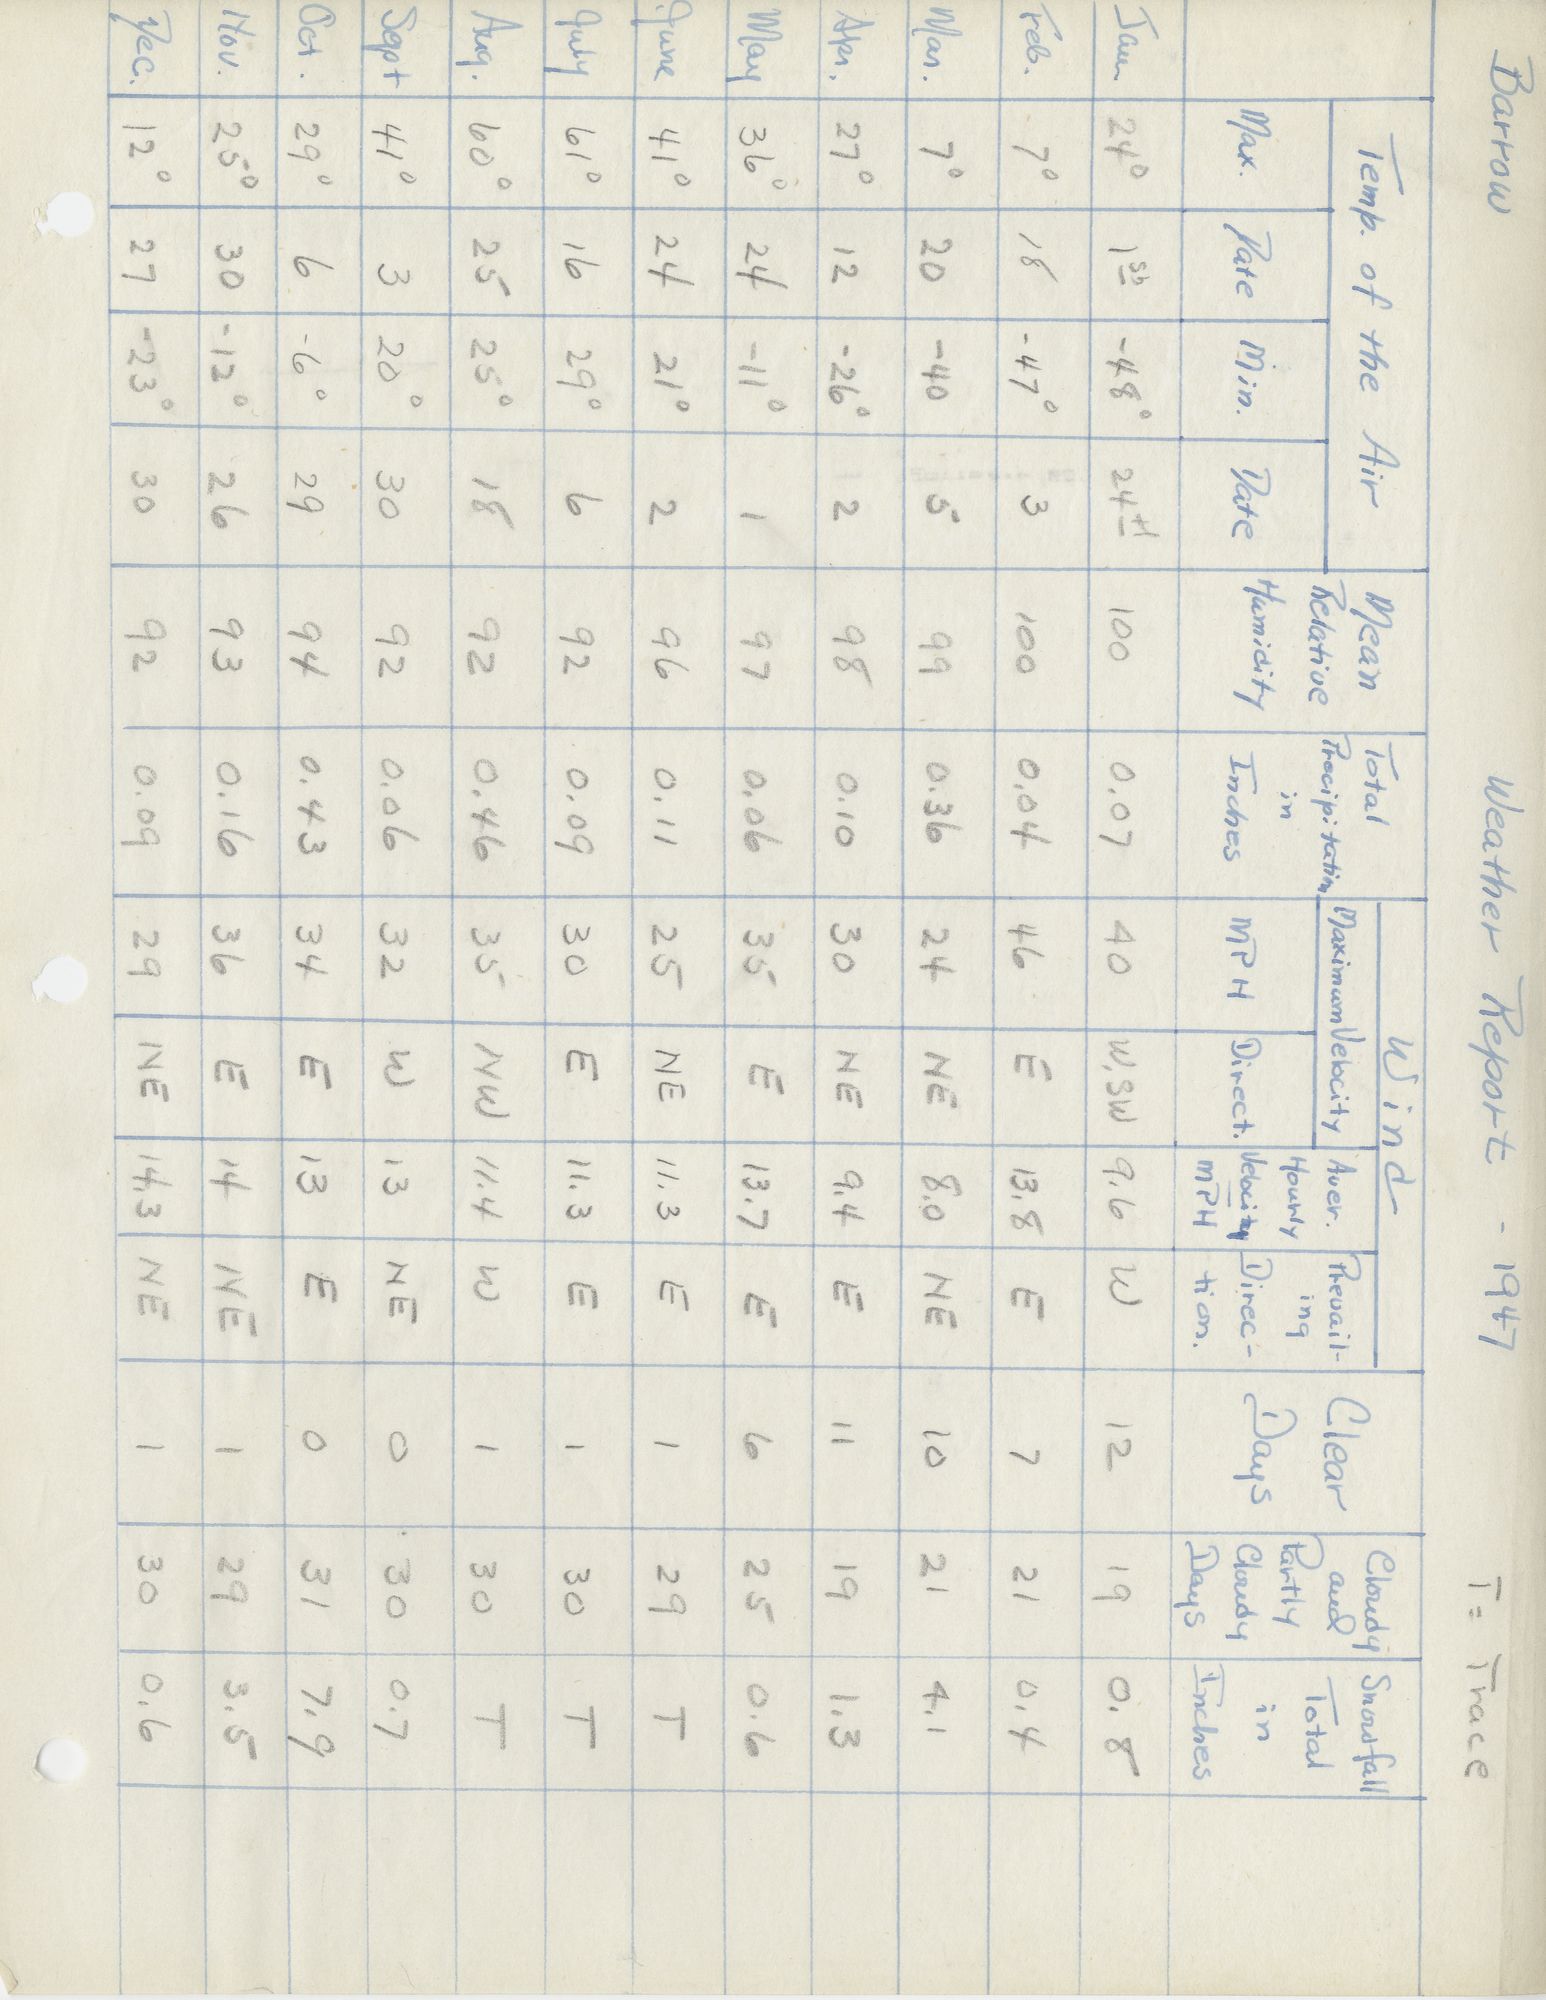 Barrow Weather Report - 1947 T= Trace
Temp. of the Air Mean Relative Humidity Total Precipitation in Inches Wind Clear Days Cloudy and Partly Cloudy Days Snowfall Total in Inches
Maximum Velocity Aver. Hourly Velocity MPH Prevail-ing Direc-tion.
Max. Date Min. Date MPH Direct.
Jan 24° 1st -48° 24th 100 0.07 40 W,SW 9.6 W 12 19 0.8
Feb. 7° 18 -47° 3 100 0.04 46 E 13.8 E 7 21 0.4
Mar. 7° 20 -40 5 99 0.36 24 NE 8.0 NE 10 21 4.1
Apr. 27° 12 -26° 2 98 0.10 30 NE 9.4 E 11 19 1.3
May 36° 24 -11° 1 97 0.06 35 E 13.7 E 6 25 0.6
June 41° 24 21° 2 96 0.11 25 NE 11.3 E 1 29 T
July 61° 16 29° 6 92 0.09 30 E 11.3 E 1 30 T
Aug. 60° 25 25° 18 92 0.46 35 NW 11.4 W 1 30 T
Sept 41° 3 20° 30 92 0.06 32 W 13 NE 0 30 0.7
Oct. 29° 6 -6° 29 94 0.43 34 E 13 E 0 31 7.9
Nov. 25° 30 -12° 26 93 0.16 36 E 14 NE 1 29 3.5
Dec. 12° 27 -23° 30 92 0.09 29 NE 14.3 NE 1 30 0.6